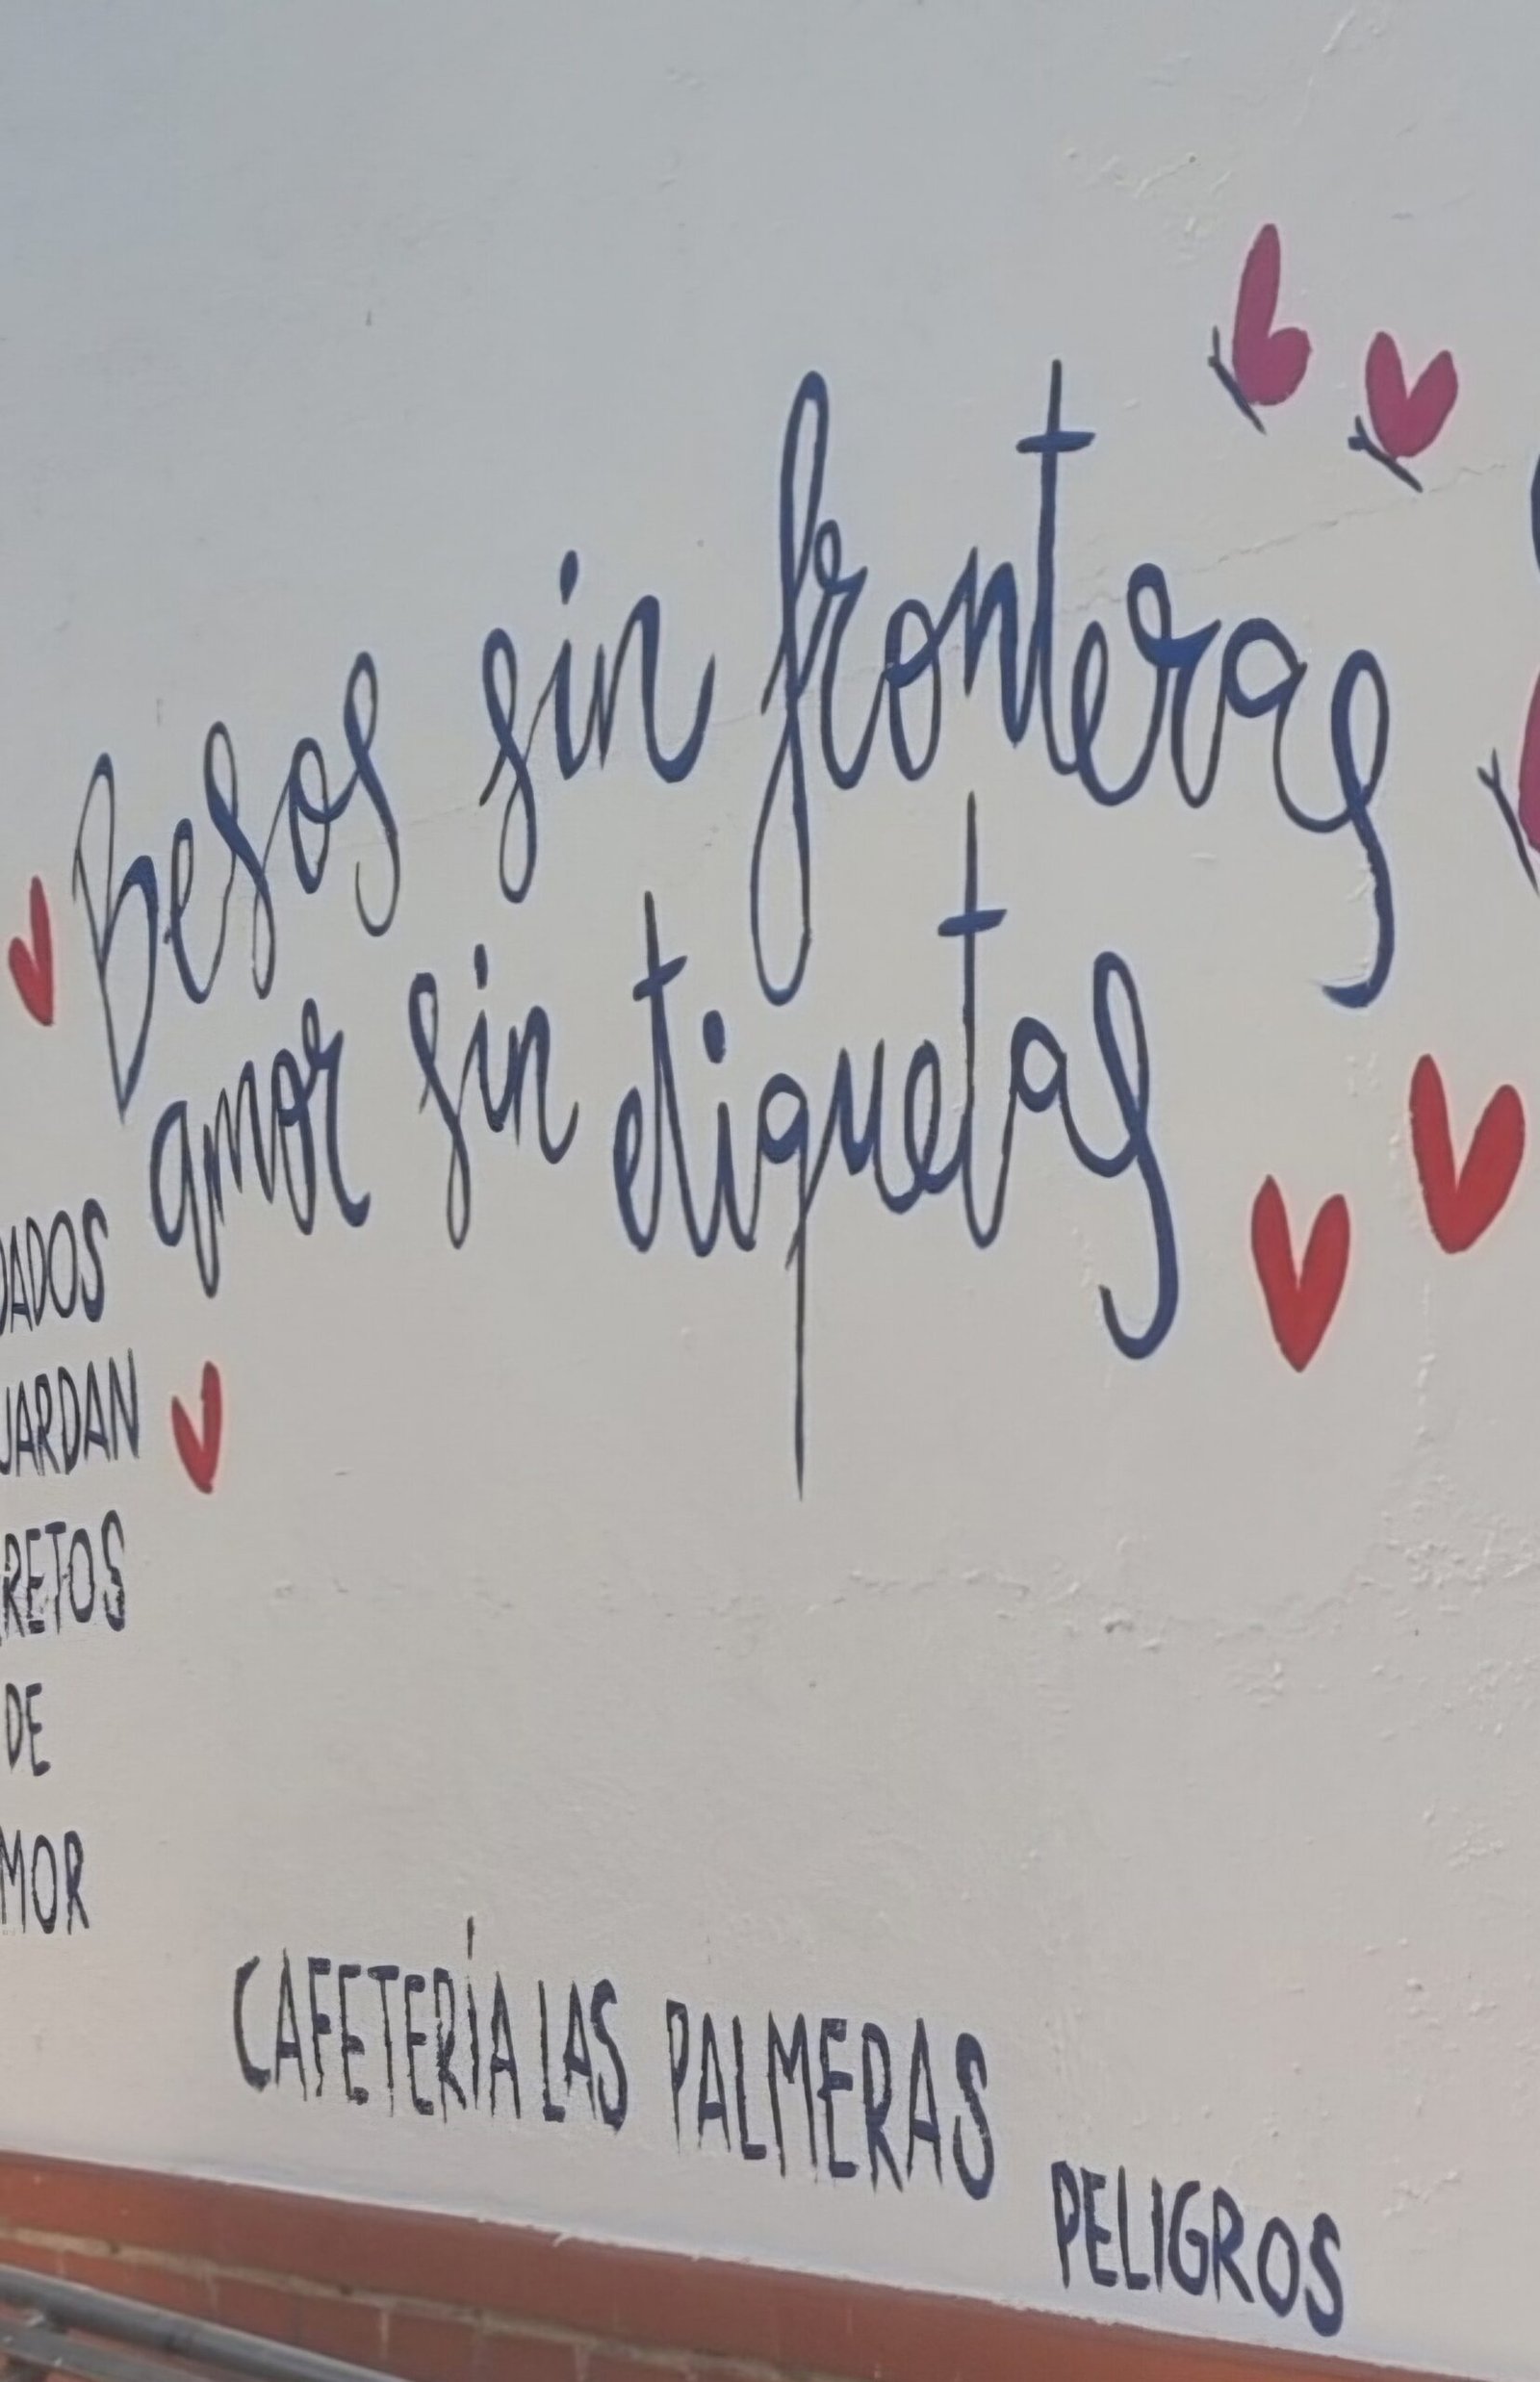 Besos sin fronteras
amor sin etiquetas
DADOS
UARDAN
RETOS
DE
MOR
CAFETERÍA LAS PALMERAS
PELIGROS